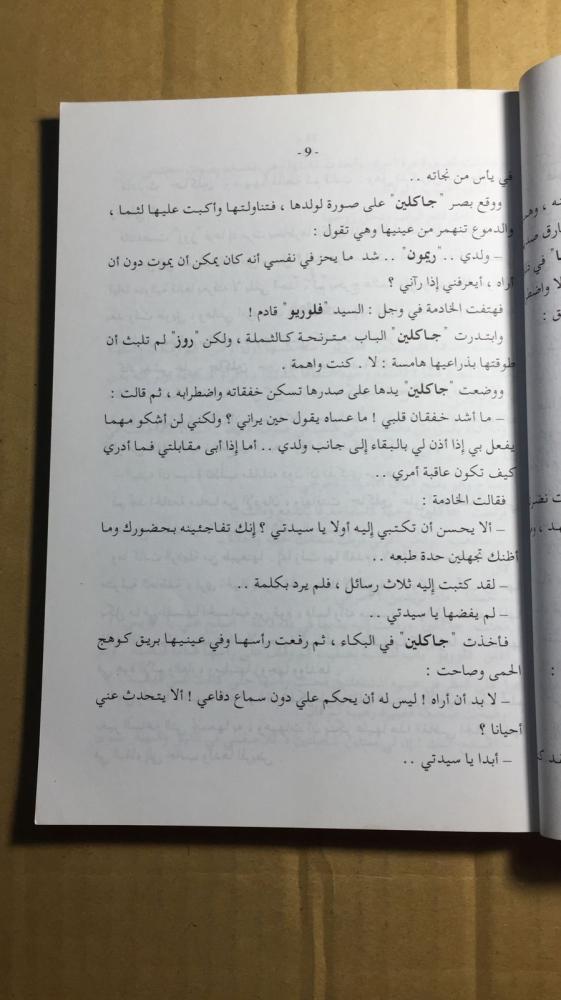 - 9 -
في يأس من نجاته ..
ووقع بصر "جاكلين" على صورة لولدها ، فتناولتها وأكبت عليها لثما ،
والدموع تنهمر من عينيها وهي تقول :
– ولدي .. "ريمون" .. شد ما يحز في نفسي أنه كان يمكن أن يموت دون أن
أراه ، أيعرفني إذا رآني ؟
فهتفت الخادمة في وجل : السيد "فلوريو" قادم !
وابتدرت "جاكلين" الباب مترنحة كالثملة ، ولكن "روز" لم تلبث أن
طوقتها بذراعيها هامسة : لا . كنت واهمة .
ووضعت "جاكلين" يدها على صدرها تسكن خفقاته واضطرابه ، ثم قالت :
– ما أشد خفقان قلبي ! ما عساه يقول حين يراني ؟ ولكني لن أشكو مهما
يفعل بي إذا أذن لي بالبقاء إلى جانب ولدي .. أما إذا أبى مقابلتي فما أدري
كيف تكون عاقبة أمري ..
فقالت الخادمة :
– ألا يحسن أن تكتبي إليه أولا يا سيدتي ؟ إنك تفاجئينه بحضورك وما
أظنك تجهلين حدة طبعه ..
– لقد كتبت إليه ثلاث رسائل ، فلم يرد بكلمة ..
– لم يفضها يا سيدتي ..
فأخذت "جاكلين" في البكاء ، ثم رفعت رأسها وفي عينيها بريق كوهج
الحمى وصاحت :
– لا بد أن أراه ! ليس له أن يحكم علي دون سماع دفاعي ! ألا يتحدث عني
أحيانا ؟
– أبدا يا سيدتي ..